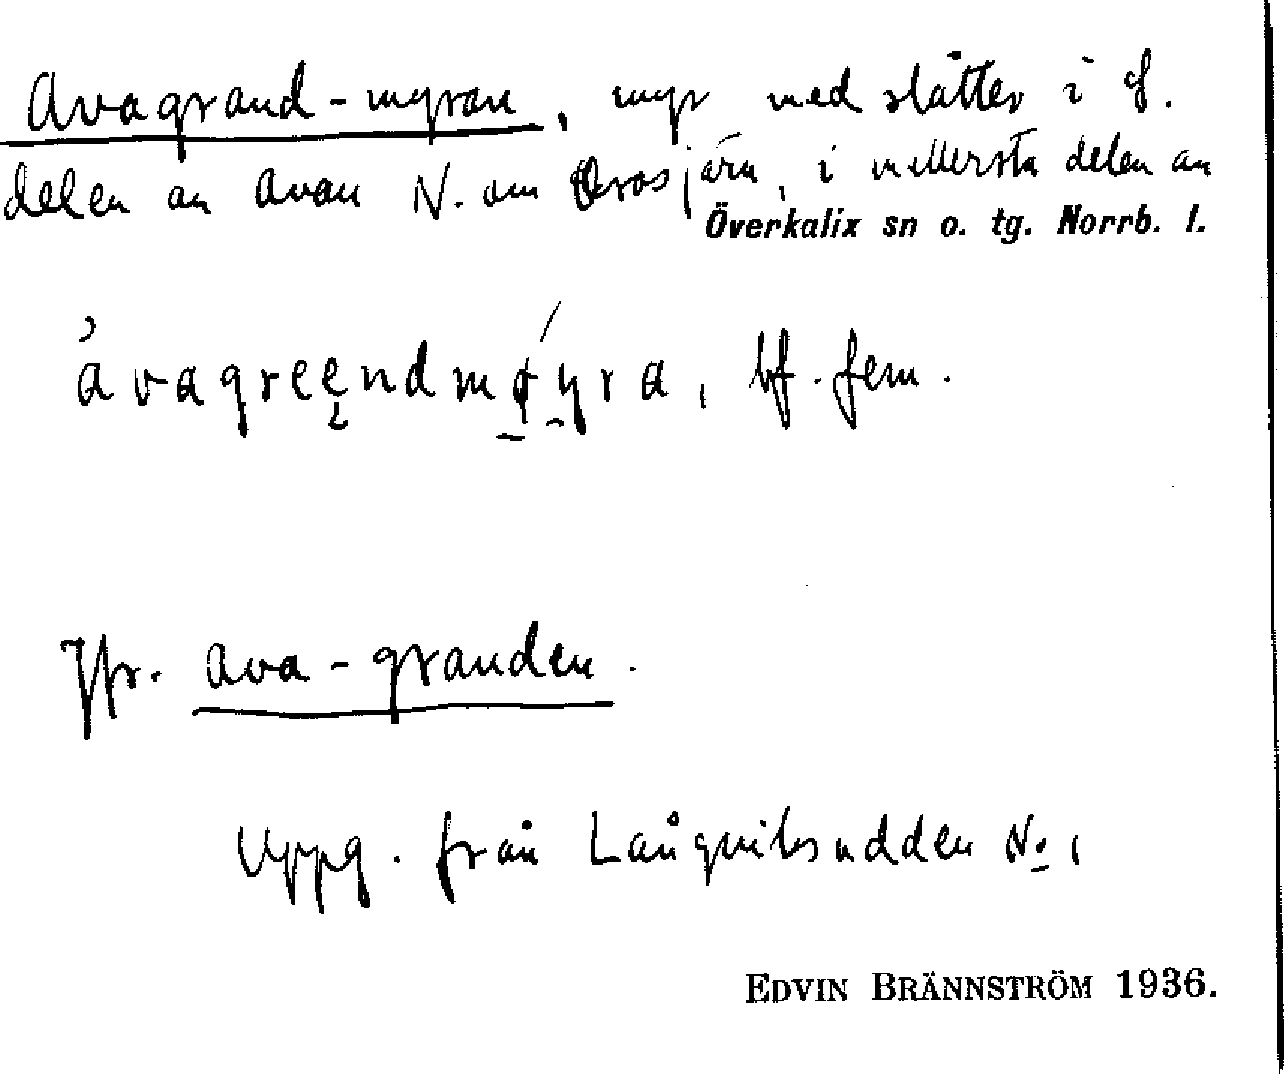 Avagrand-myran, myr med slåtter i S.
delen av Avan N. om Orrosjärv, i mellersta delen av
Överkalix sn o. tg. Norrb. l.
ávagreẹndmǿyra, bf. fem.
Jfr. ava-granden.
Uppg. från Långviksudden No 1
EDVIN BRÄNNSTRÖM 1936.